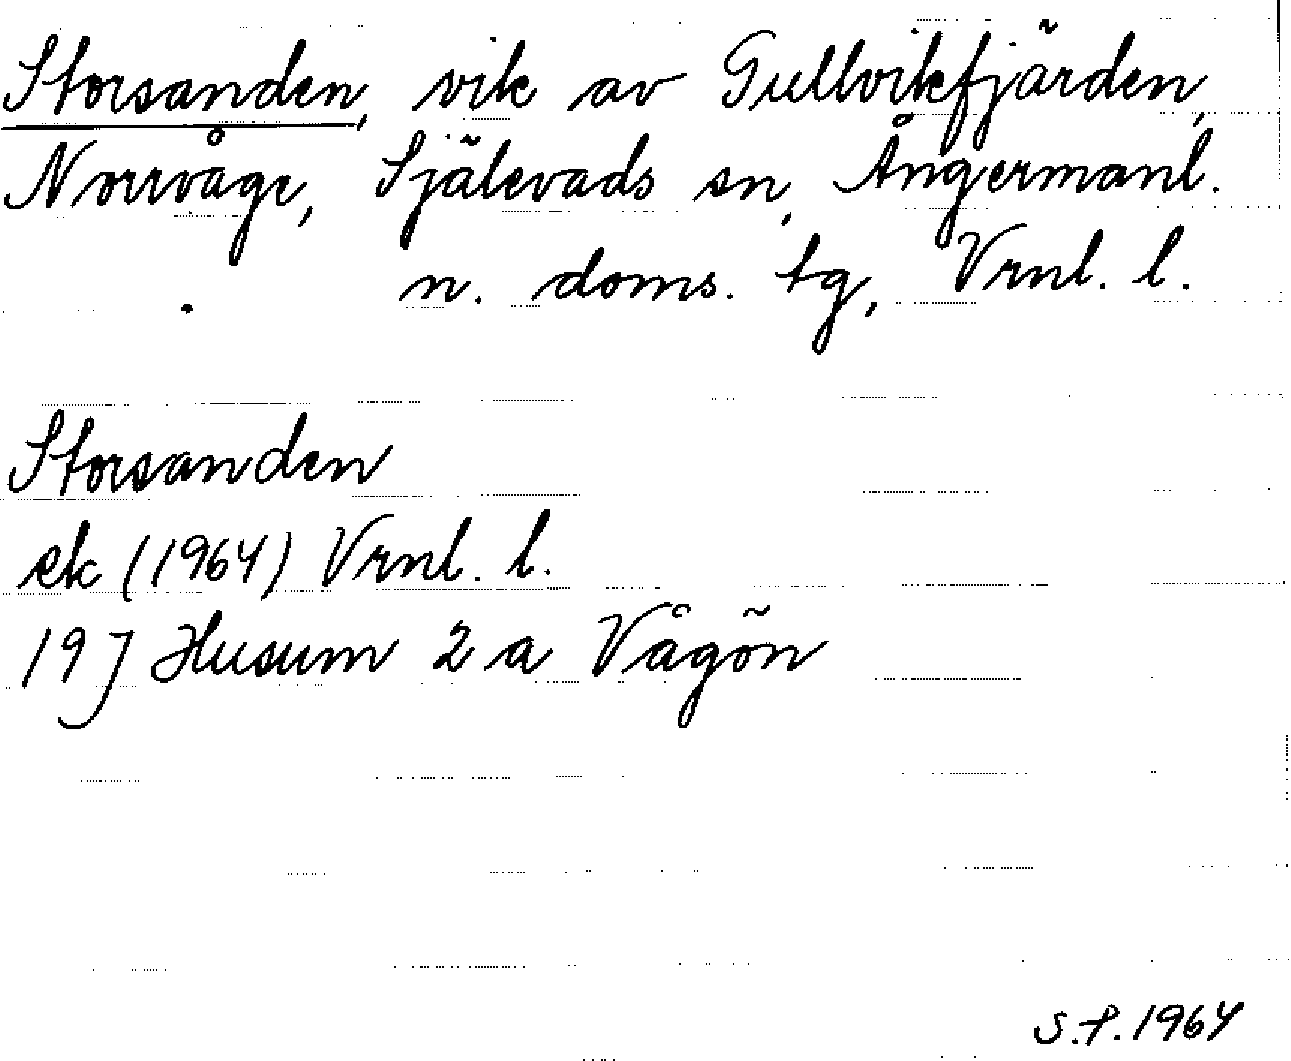 Storsanden, vik av Gullvikfjärden,
Norrvåge, Själevads sn, Ångermanl.
n. doms. tg, Vrnl. l.
Storsanden
ek (1964) Vrnl. l.
19J Husum 2 a Vågön
S.P. 1964